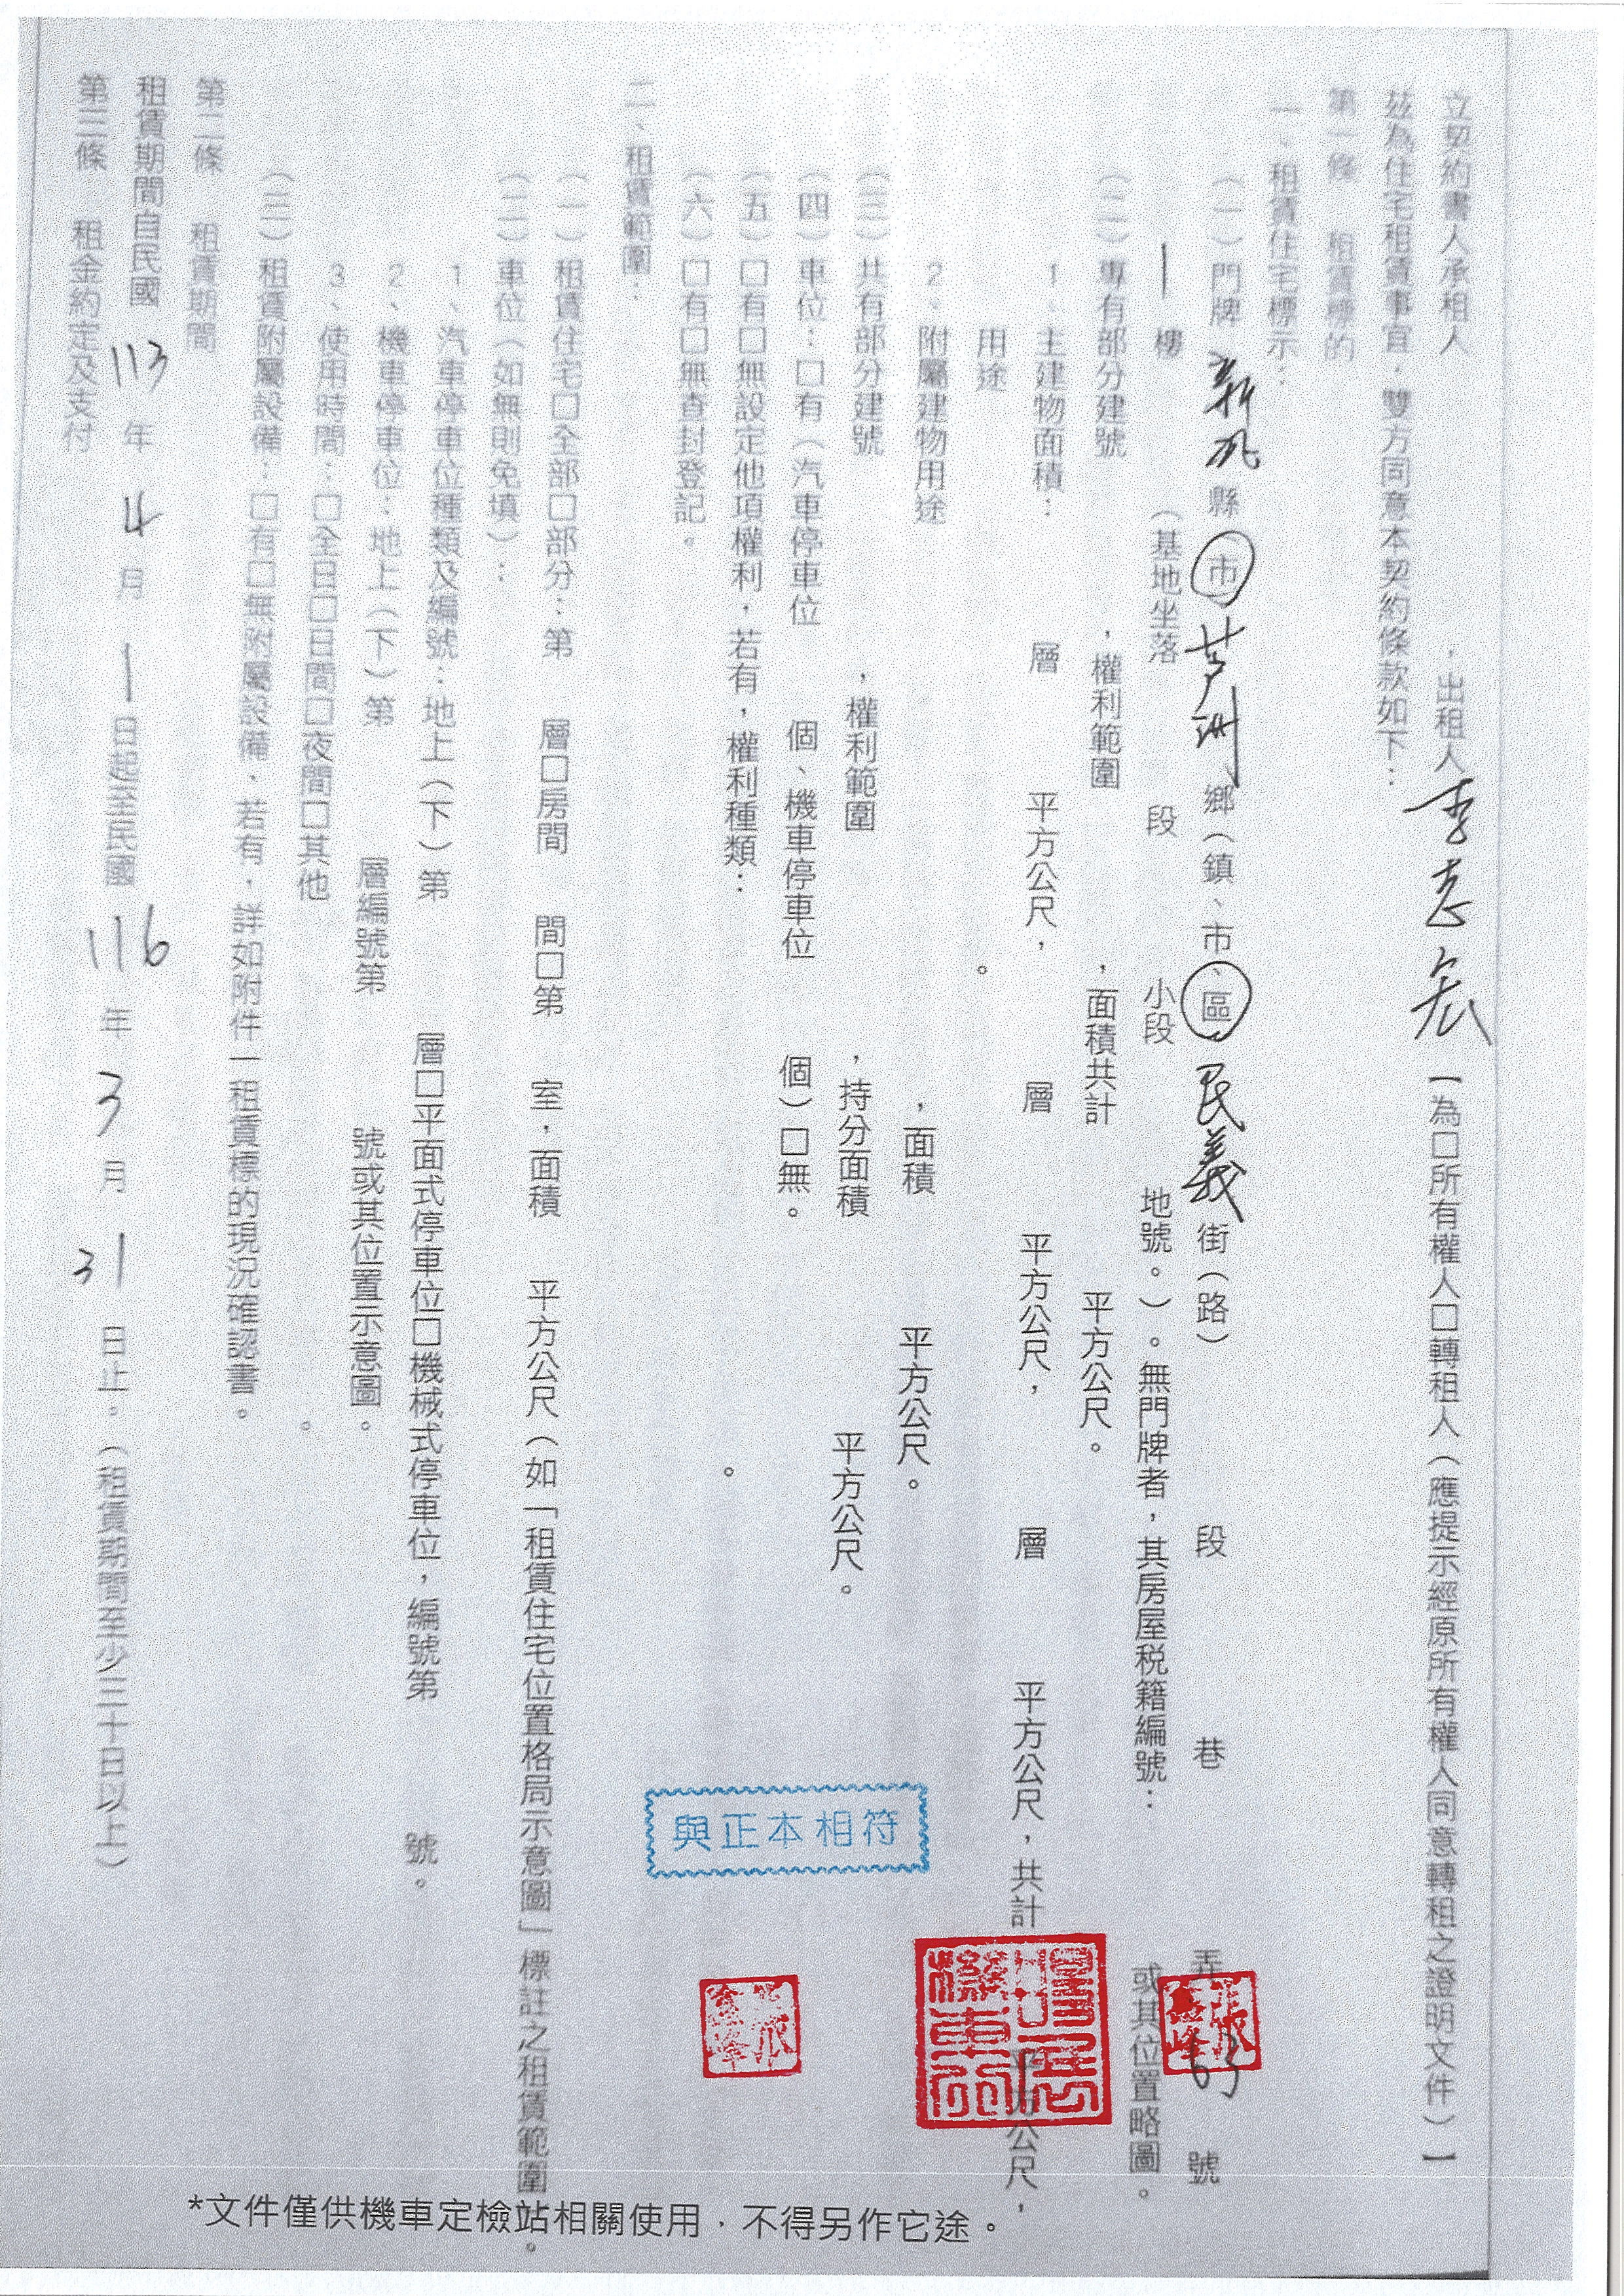 立契約書人承租人　，出租人李志宏【為□所有權人□轉租人（應提示經原所有權人同意轉租之證明文件）】
茲為住宅租賃事宜，雙方同意本契約條款如下：
第一條　租賃標的
一、租賃住宅標示：
（一）門牌 新北 縣市 芦洲 鄉（鎮、市、區 民義 街（路）　段　巷　弄 63 號
1 樓　（基地坐落　段　小段　地號。）。無門牌者，其房屋稅籍編號：　或其位置略圖。
（二）專有部分建號　，權利範圍　，面積共計　平方公尺。
1、主建物面積：　層　平方公尺，　層　平方公尺，　層　平方公尺，共計　平方公尺，
用途　。
2、附屬建物用途　，面積　平方公尺。
（三）共有部分建號　，權利範圍　，持分面積　平方公尺。
（四）車位：□有（汽車停車位　個、機車停車位　個）□無。
（五）□有□無設定他項權利，若有，權利種類：　。
（六）□有□無查封登記。
二、租賃範圍：
（一）租賃住宅□全部□部分：第　層□房間　間□第　室，面積　平方公尺（如「租賃住宅位置格局示意圖」標註之租賃範圍）。
（二）車位（如無則免填）：
1、汽車停車位種類及編號：地上（下）第　層□平面式停車位□機械式停車位，編號第　號。
2、機車停車位：地上（下）第　層編號第　號或其位置示意圖。
3、使用時間：□全日□日間□夜間□其他　。
（三）租賃附屬設備：□有□無附屬設備，若有，詳如附件一租賃標的現況確認書。
第二條　租賃期間
租賃期間自民國 113 年 4 月 1 日起至民國 116 年 3 月 31 日止。（租賃期間至少三十日以上）
第三條　租金約定及支付
與正本相符
*文件僅供機車定檢站相關使用，不得另作它途。